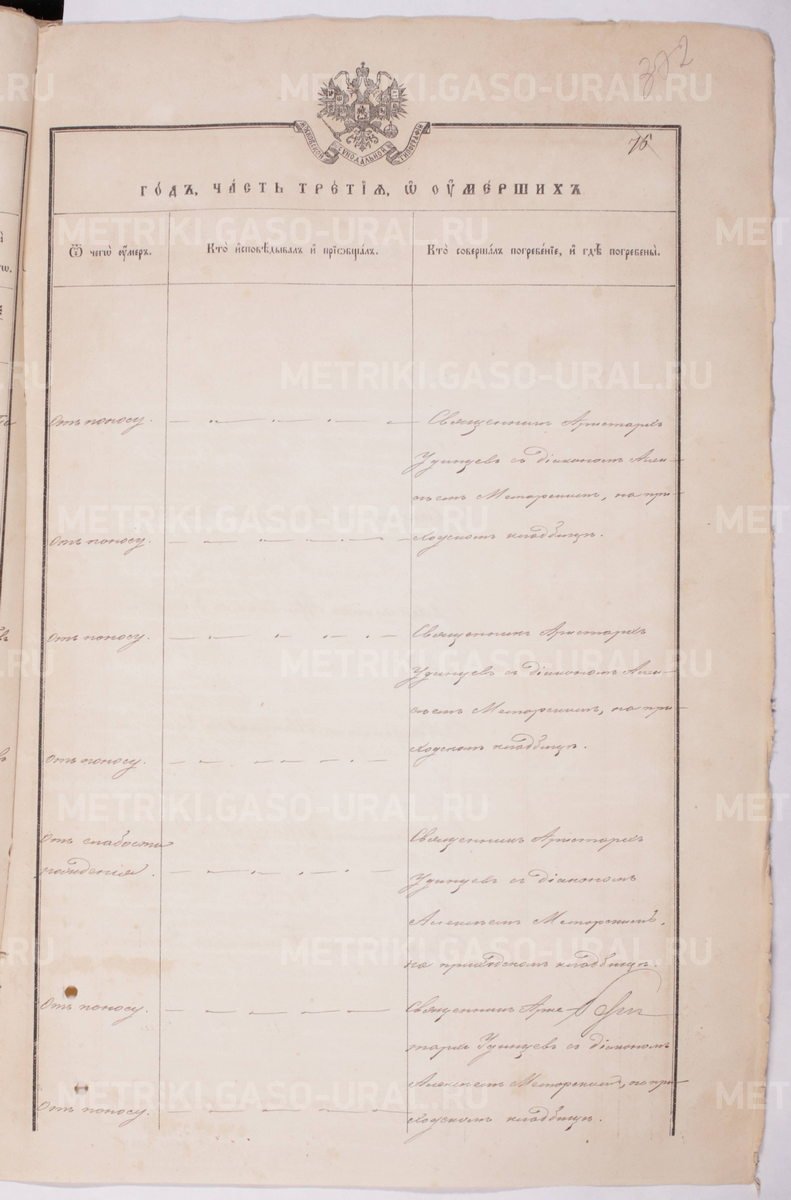 372
75
МОСКОВСКОЙ СѴНОДАЛЬНОЙ ТИПОГРАФІИ
ГО́ДЪ, ЧА́СТЬ ТРЕ́ТІѦ, Ѡ҆ ОУ҆МЕ́РШИХЪ
Ѿ чегѡ̀ оу҆́меръ.
Кто̀ и҆сповѣ́дывалъ и҆ прїѡбща́лъ.
Кто̀ соверша́лъ погребе́нїе, и҆ гдѣ̀ погребены̀.
Отъ поносу.
Священникъ Аристархъ
Удинцевъ съ діакономъ Алек-
сѣемъ Меморскимъ, на при-
Отъ поносу.
ходскомъ кладбищѣ.
Отъ поносу.
Священникъ Аристархъ
Удинцевъ съ діакономъ Алек-
сѣемъ Меморскимъ, на при-
ходскомъ кладбищѣ.
Отъ поносу.
Отъ слабости
рожденія.
Священникъ Аристархъ
Удинцевъ съ діакономъ
Алексѣемъ Меморскимъ,
на приходскомъ кладбищѣ.
Отъ поносу.
Священникъ Арис
тархъ Удинцевъ съ діакономъ
Алексѣемъ Меморскимъ, на при-
Отъ поносу.
ходскомъ кладбищѣ.
METRIKI.GASO-URAL.RU